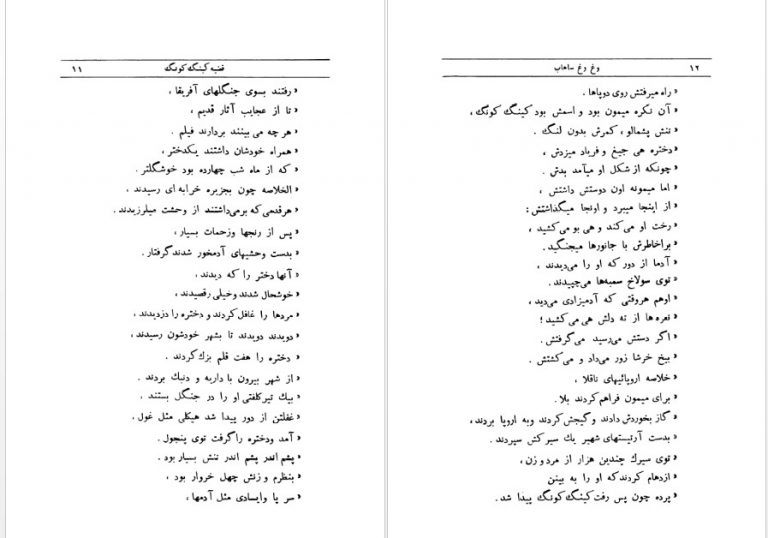 قضیه کینگ کونگ ۱۱
« رفتند بسوی جنگلهای آفریقا ،
تا از عجایب آثار قدیم ،
« هر چه می بینند بردارند فیلم .
« همراه خودشان داشتند یکدختر ،
« که از ماه شب چهارده بود خوشگلتر .
« الخلاصه چون بجزیره خرابه ای رسیدند ،
« هرقدمی که برمی‌داشتند از وحشت میلرزیدند .
« پس از رنجها وزحمات بسیار ،
« بدست وحشیهای آدمخور شدند گرفتار .
« آنها دختر را که دیدند ،
« خوشحال شدند وخیلی رقصیدند ،
« مردها را غافل کردند و دختره را دزدیدند ،
« دویدند دویدند تا بشهر خودشون رسیدند ،
« دختره را هفت قلم بزك کردند .
« از شهر بیرون با داریه و دنبك بردند .
« بیك تیرکلفتی او را در جنگل بستند .
« غفلتن از دور پیدا شد هیکلی مثل غول .
« آمد ودختره راگرفت توی پنجول .
« پشم اندر پشم اندر تنش بسیار بود .
« بنظرم وزنش چهل خروار بود ،
« سر پا وایسادی مثل آدمها ،
۱۲ وغ وغ ساهاب
« راه میرفتش روی دوپاها .
« آن نکره میمون بود و اسمش بود کینگ کونگ ،
« تنش پشمالو ، کمرش بدون لنگ .
« دختره هی جیغ و فریاد میزدش ،
« چونکه از شکل او میآمد بدش .
« اما میمونه اون دوستش داشتش ،
« از اینجا میبرد و اونجا میگذاشتش :
« رخت او می‌کند و هی بو می‌کشید ،
« براخاطرش با جانورها میجنگید .
« آدما از دور که او را می‌دیدند ،
« توی سولاخ سمبه‌ها می‌چپیدند .
« اوهم هروقتی که آدمیزادی می‌دید ،
« نعره ها از ته دلش هی می‌کشید ؛
« اگر دستش می‌رسید می‌گرفتش .
« بیخ خرشا زور می‌داد و می‌کشتش .
« خلاصه اروپائیهای ناقلا ،
« برای میمون فراهم کردند بلا .
« گاز بخوردش دادند وگیجش کردند وبه اروپا بردند ،
« بدست آرتیستهای شهیر یك سیرکش سپردند .
« توی سیرك چندین هزار از مرد و زن ،
« ازدهام کردند که او را به بینن
« پرده چون پس رفت کینگ کونگ پیدا شد .